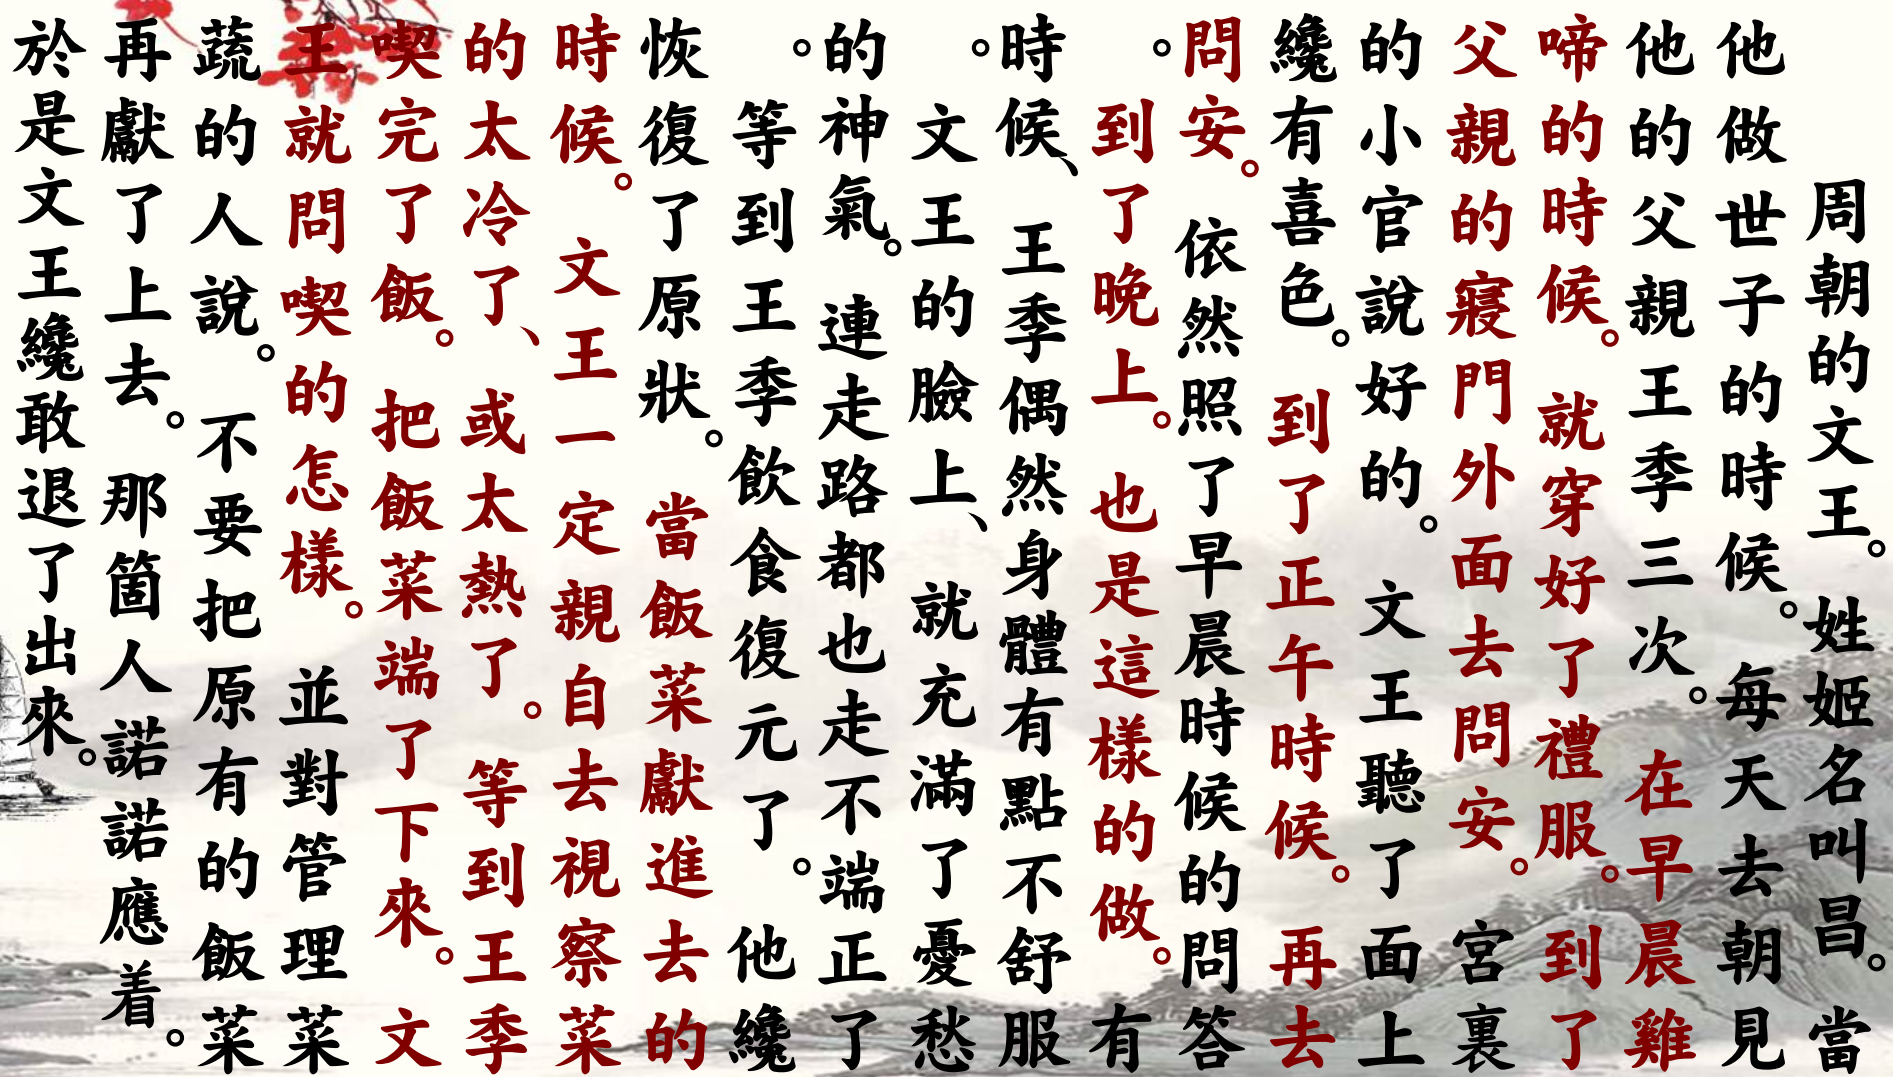 周朝的文王。姓姬名叫昌。當
他做世子的時候。每天去朝見
他的父親王季三次。在早晨雞
啼的時候。就穿好了禮服。到了
父親的寢門外面去問安。宮裏
的小官說好的。文王聽了面上
纔有喜色。到了正午時候。再去
問安。依然照了早晨時候的問答
。到了晚上。也是這樣的做。有
時候、王季偶然身體有點不舒服
。文王的臉上、就充滿了憂愁
的神氣。連走路都也走不端正了
。等到王季飲食復元了。他纔
恢復了原狀。當飯菜獻進去的
時候。文王一定親自去視察菜
的太冷了、或太熱了。等到王季
喫完了飯。把飯菜端了下來。文
王就問喫的怎樣。並對管理菜
蔬的人說。不要把原有的飯菜
再獻了上去。那箇人諾諾應着。
於是文王纔敢退了出來。